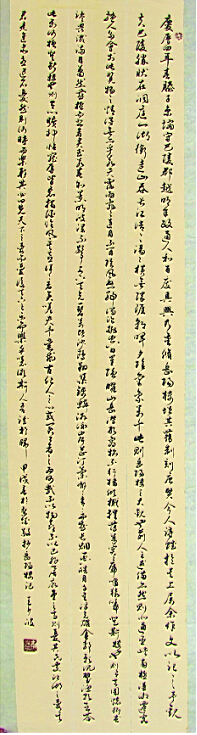 慶曆四年春滕子京謫守巴陵郡越明年政通人和百廢具興乃重修岳陽樓增其舊制刻唐賢今人詩賦於其上屬余作文以記之予觀
夫巴陵勝狀在洞庭一湖銜遠山吞長江浩浩湯湯橫無際涯朝暉夕陰氣象萬千此則岳陽樓之大觀也前人之述備矣然則北通巫峽南極瀟湘遷客
騷人多會於此覽物之情得無異乎若夫霪雨霏霏連月不開陰風怒號濁浪排空日星隱曜山岳潛形商旅不行檣傾楫摧薄暮冥冥虎嘯猿啼登斯樓也則有去國懷鄉憂
讒畏譏滿目蕭然感極而悲者矣至若春和景明波瀾不驚上下天光一碧萬頃沙鷗翔集錦鱗游泳岸芷汀蘭郁郁青青而或長煙一空皓月千里浮光躍金靜影沉璧漁歌互答
此樂何極登斯樓也則有心曠神怡寵辱偕忘把酒臨風其喜洋洋者矣嗟夫予嘗求古仁人之心或異二者之為何哉不以物喜不以己悲居廟堂之高則憂其民處江湖之遠則憂其
君是進亦憂退亦憂然則何時而樂耶其必曰先天下之憂而憂後天下之樂而樂乎噫微斯人吾誰與歸 甲戌春 岳陽樓記 波